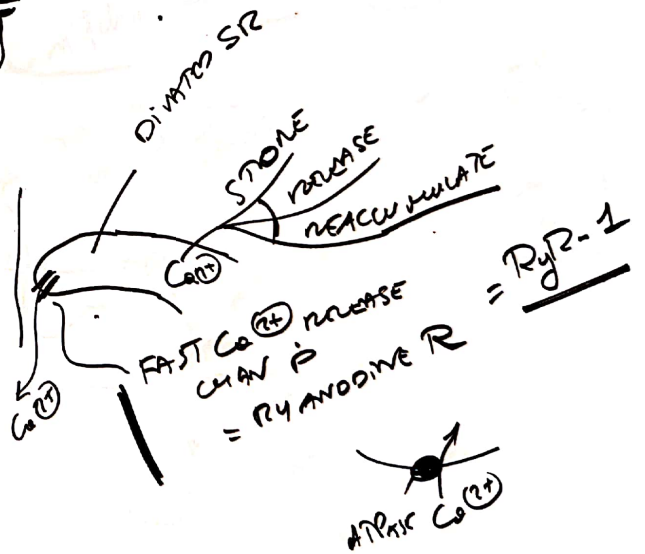 DILATED SR
STORE
RELEASE
REACCUMULATE
Ca2+
FAST Ca2+ RELEASE
CHAN P
= RYANODINE R
= RyR-1
Ca2+
ATPase Ca2+